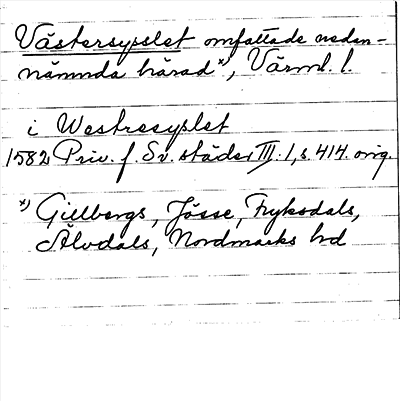 Västersysslet omfattade neden-
nämnda härad ˣ⁾, Värml. l.
i Westresyslet
1582 Priv. f. Sv. städer III. 1, s. 414. orig.
ˣ⁾ Gillbergs, Jösse, Fryksdals,
Älvdals, Nordmarks hd